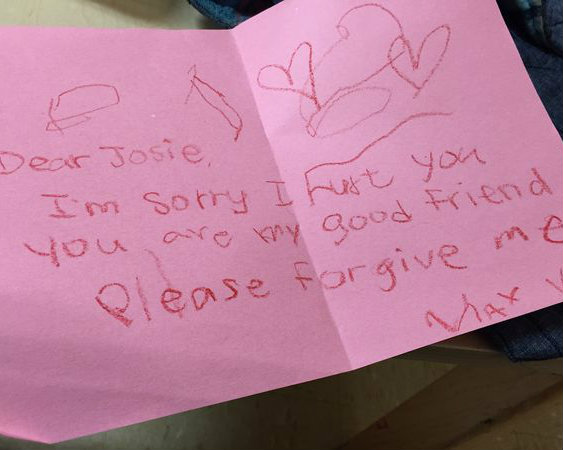 Dear Josie,
I'm sorry I hurt you
you are my good friend
Please forgive me
Max V